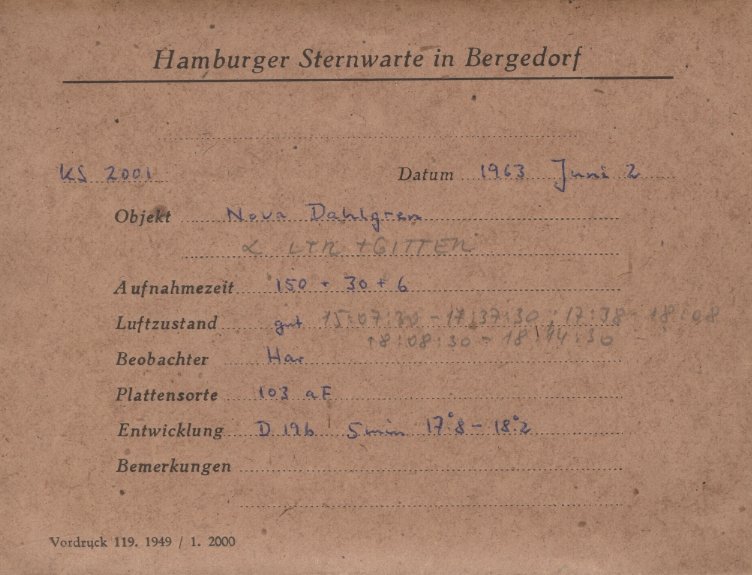 Hamburger Sternwarte in Bergedorf
KS 2001 Datum 1963 Juni 2
Objekt Nova Dahlgren
α LYR + GITTER
Aufnahmezeit 150 + 30 + 6
Luftzustand gut 15:07:30 - 17:37:30; 17:38 - 18:08
18:08:30 - 18:14:30
Beobachter Har
Plattensorte 103 aF
Entwicklung D 19b 5 min 17°8 - 18°2
Bemerkungen
Vordruck 119. 1949 / 1. 2000